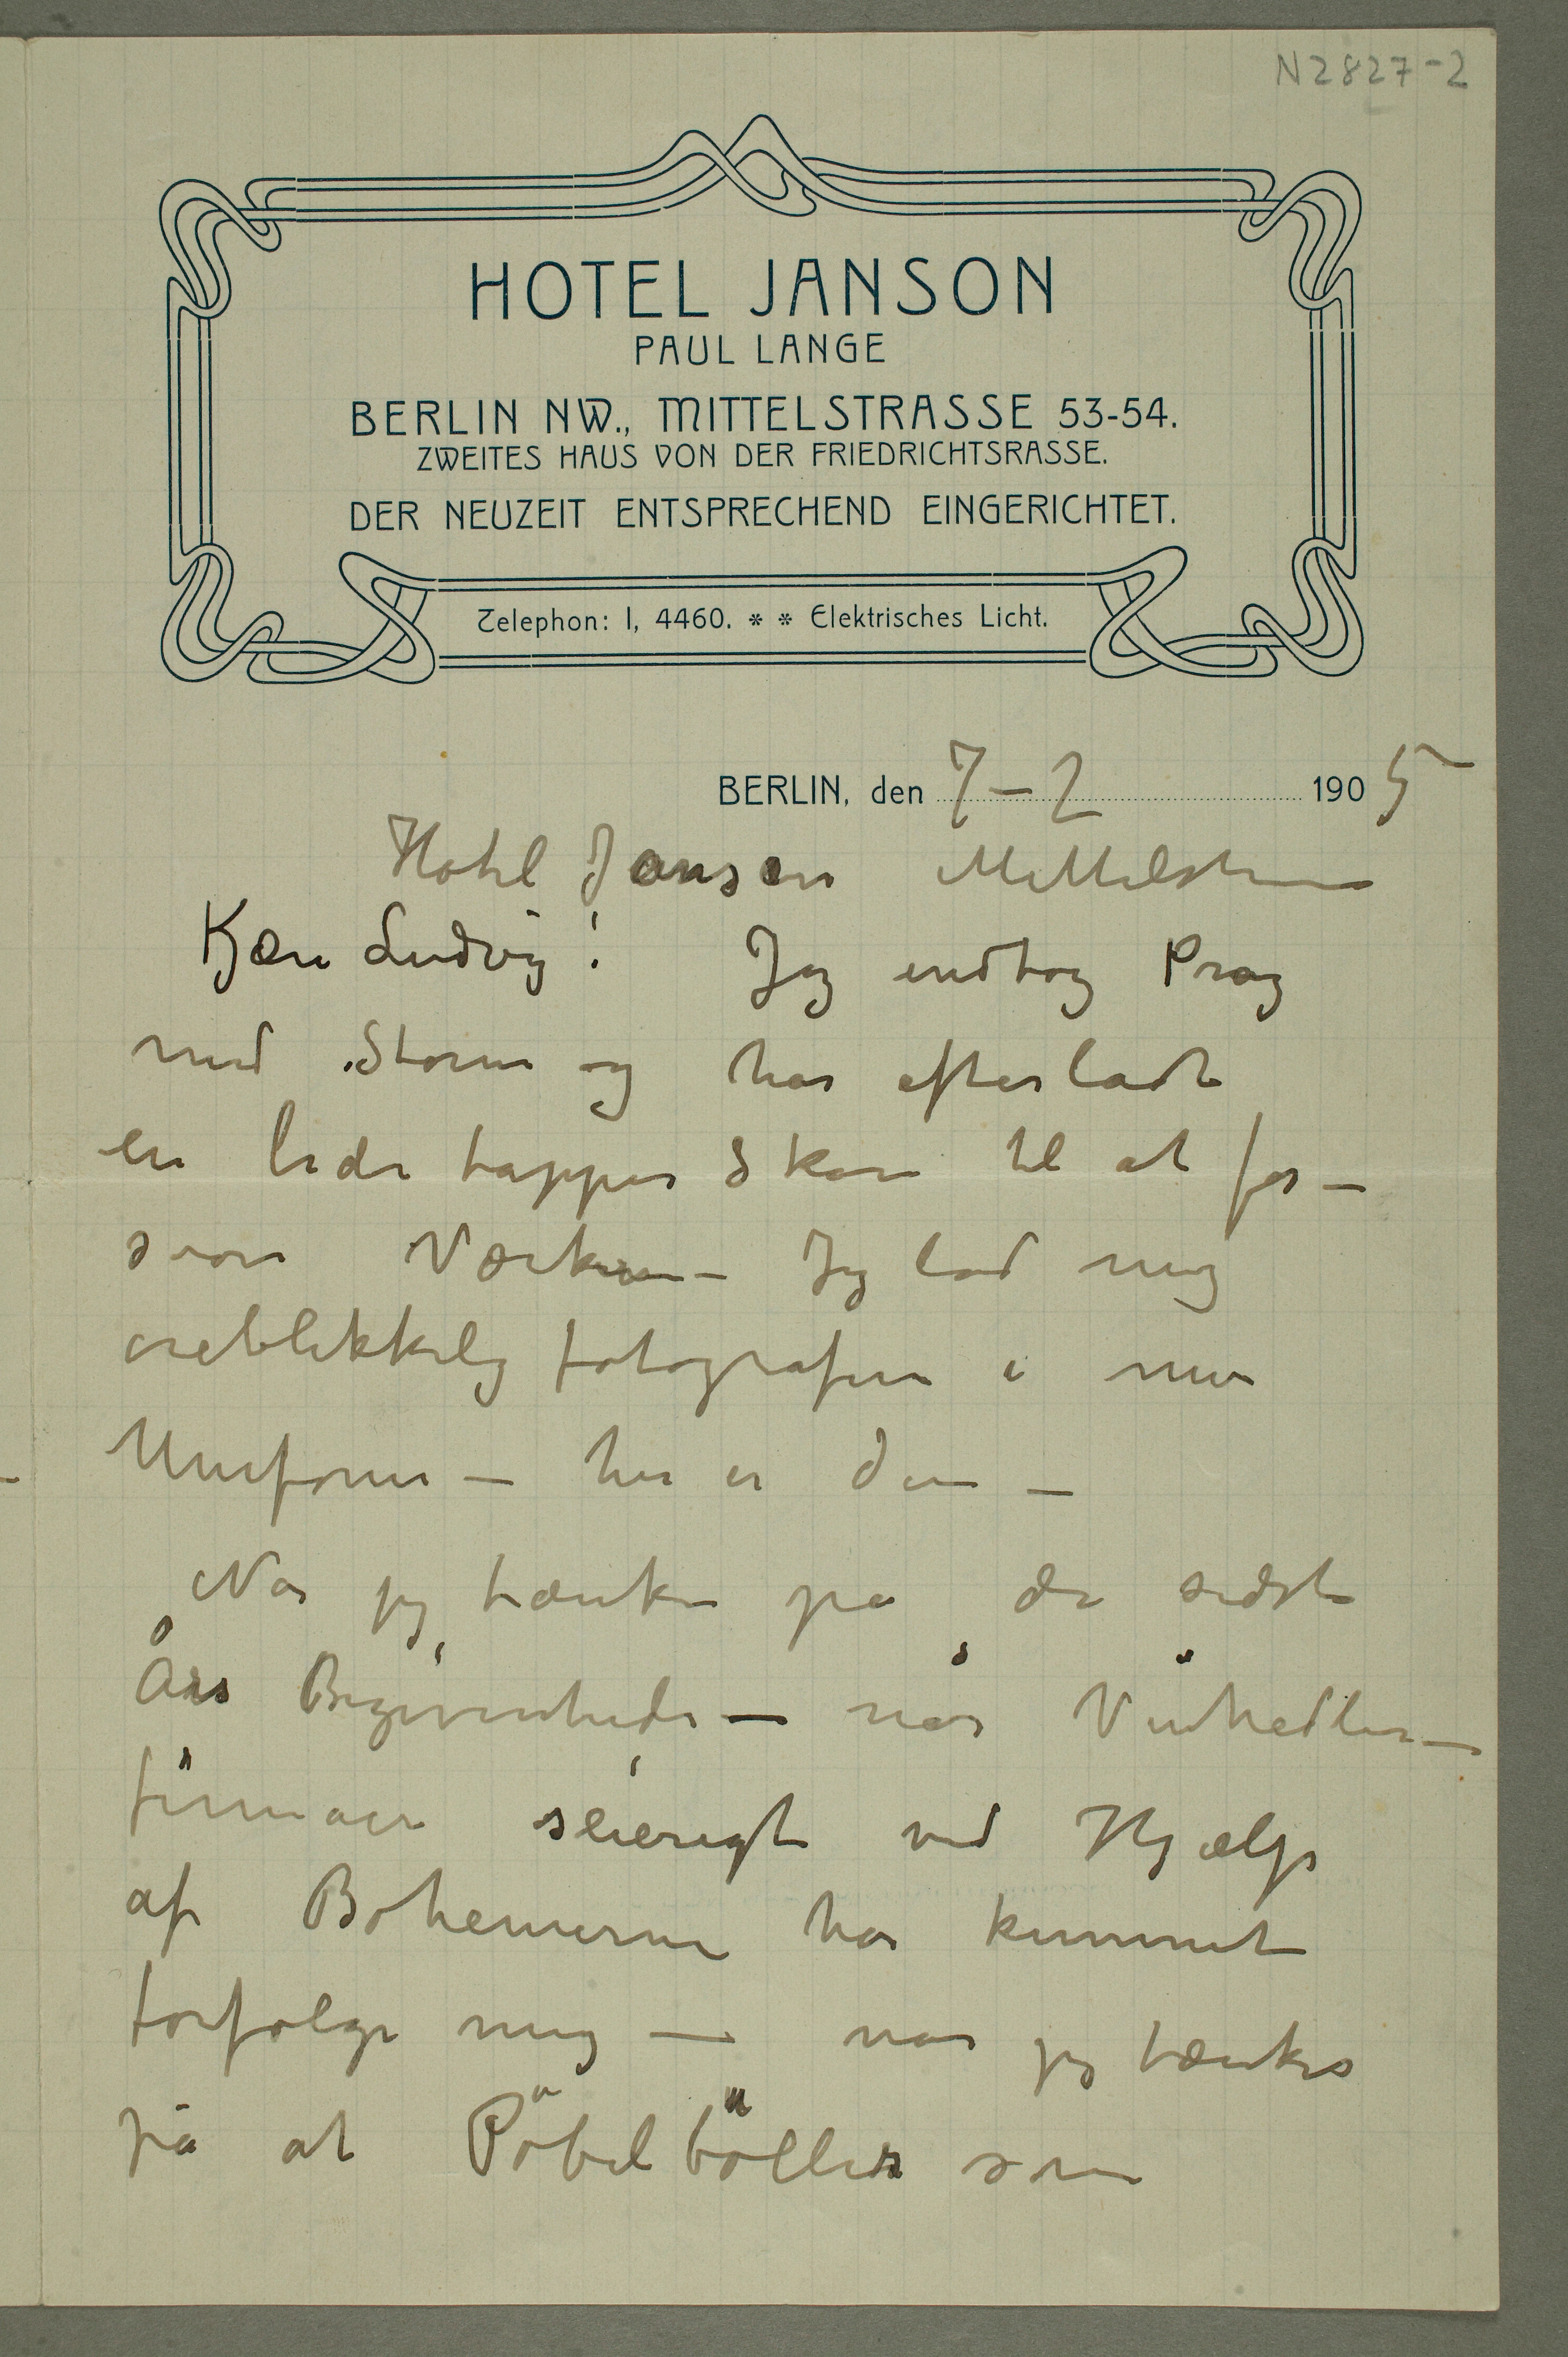 N 2827-2
HOTEL JANSON
PAUL LANGE
BERLIN NW., MITTELSTRASSE 53-54.
ZWEITES HAUS VON DER FRIEDRICHTSRASSE.
DER NEUZEIT ENTSPRECHEND EINGERICHTET.
Telephon: I, 4460. * * Elektrisches Licht.
BERLIN, den 7–2 1905
Hotel Janson Mittelstr
Kjære Ludvig! Jeg indtog Prag
med Storm og har efterladt
en liden tapper Skare til at for–
svare Værkerne – Jeg lod mig
øieblikkelig fotografere i min
Uniform – her er den –
Når jeg tænker på de sidste
Års Begivenheder – når Vinhandler–
firmaer seierigt ved Hjælp
af Bohemerne har kunnet
forfølge mig – når jeg tænker
på at Pöbelböller som